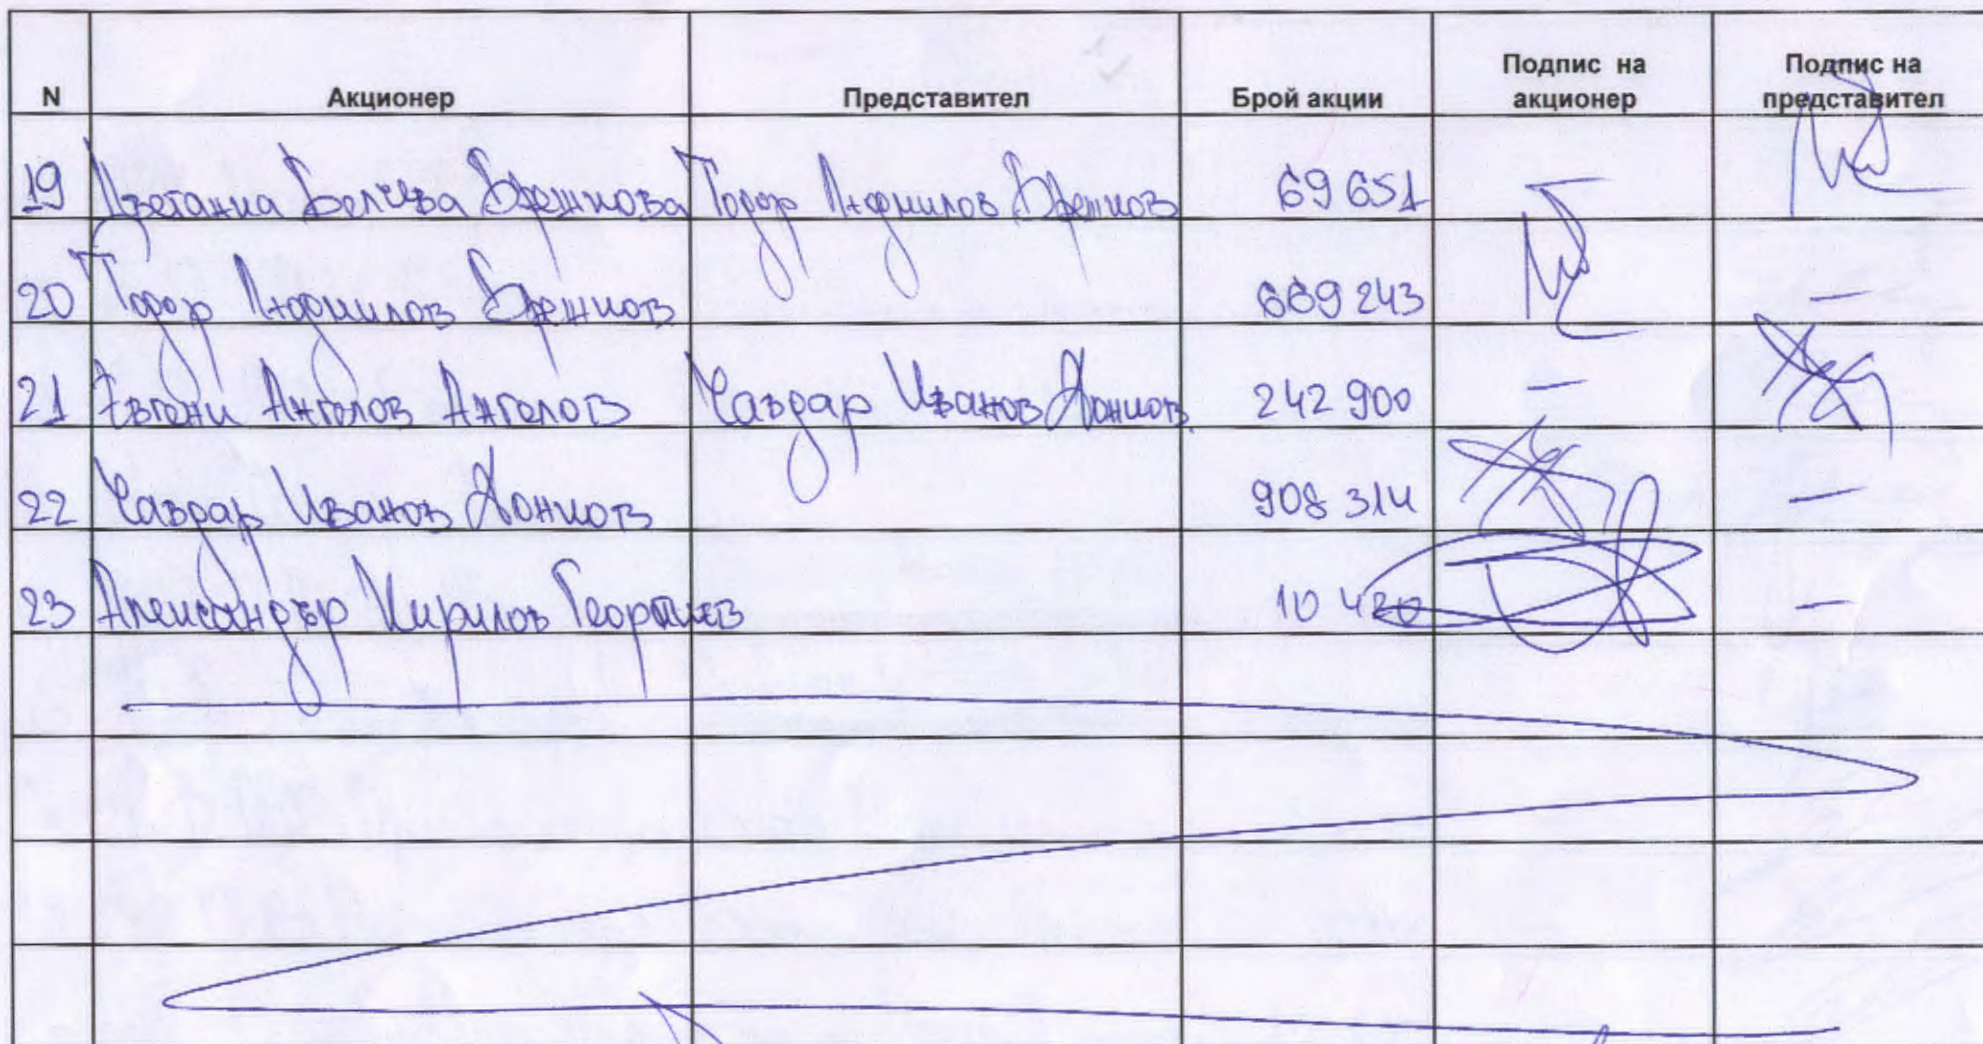 N Акционер Представител Брой акции Подпис на акционер Подпис на представител
19 Цветанка Белчева Брешкова Тодор Людмилов Брешков 69 651
20 Тодор Людмилов Брешков 669 243 —
21 Евгени Ангелов Ангелов Чавдар Иванов Донков 242 900 —
22 Чавдар Иванов Донков 908 314 —
23 Александър Кирилов Георгиев 10 420 —